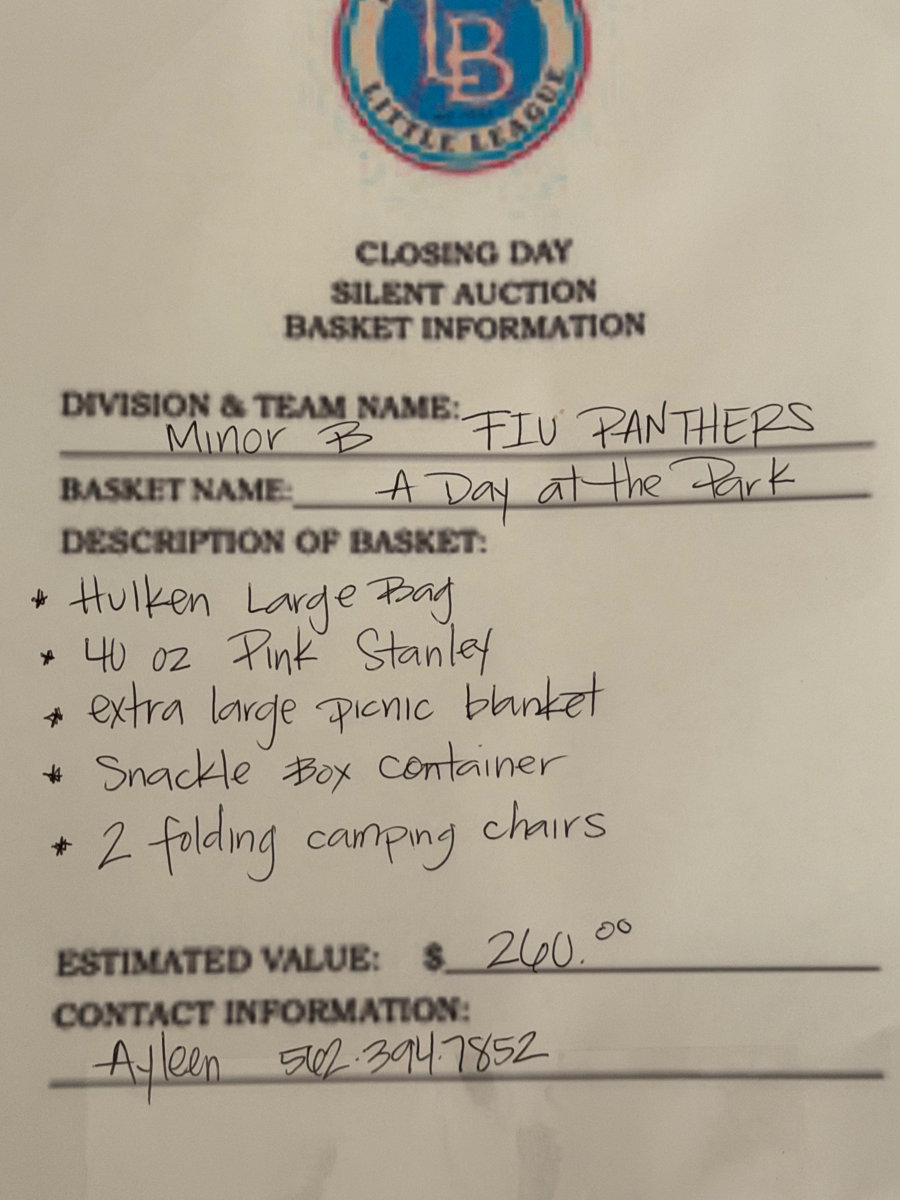 LB
LITTLE LEAGUE
CLOSING DAY
SILENT AUCTION
BASKET INFORMATION
DIVISION & TEAM NAME:
Minor B FIU PANTHERS
BASKET NAME: A Day at the Park
DESCRIPTION OF BASKET:
* Hulken Large Bag
* 40 oz Pink Stanley
* extra large picnic blanket
* Snackle Box container
* 2 folding camping chairs
ESTIMATED VALUE: $ 260.00
CONTACT INFORMATION:
Ayleen 562.394.7852